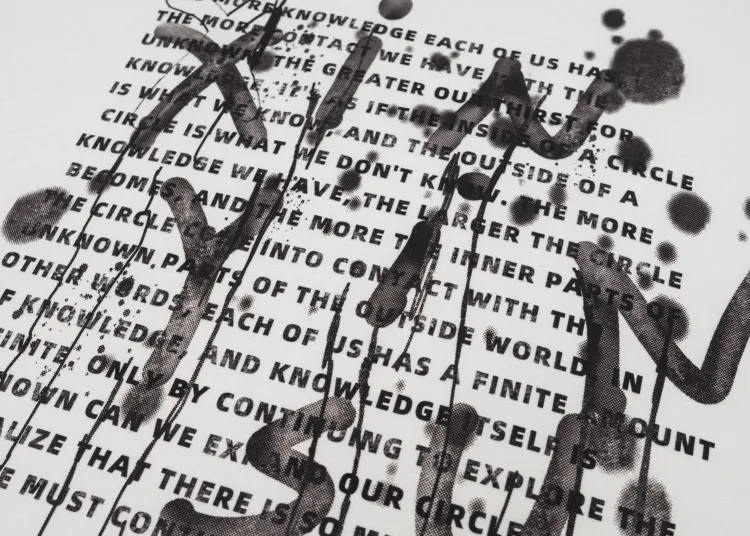 MORE KNOWLEDGE EACH OF US HAS,
THE MORE CONTACT WE HAVE WITH THE
UNKNOWN, THE GREATER OUR THIRST FOR
KNOWLEDGE. IT'S AS IF THE INSIDE OF A CIRCLE
IS WHAT WE KNOW, AND THE OUTSIDE OF A
CIRCLE IS WHAT WE DON'T KNOW. THE MORE
KNOWLEDGE WE HAVE, THE LARGER THE CIRCLE
BECOMES, AND THE MORE THE INNER PARTS OF
THE CIRCLE COME INTO CONTACT WITH THE
UNKNOWN PARTS OF THE OUTSIDE WORLD. IN
OTHER WORDS, EACH OF US HAS A FINITE AMOUNT
F KNOWLEDGE, AND KNOWLEDGE ITSELF IS
FINITE. ONLY BY CONTINUING TO EXPLORE THE
NOWN CAN WE EXPAND OUR CIRCLE
ALIZE THAT THERE IS SO M
E MUST CONTI